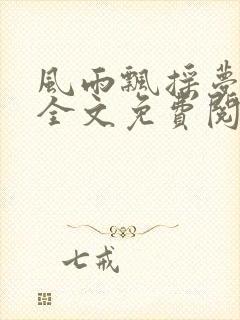 風雨飄採夢
全文免費閱
七戒